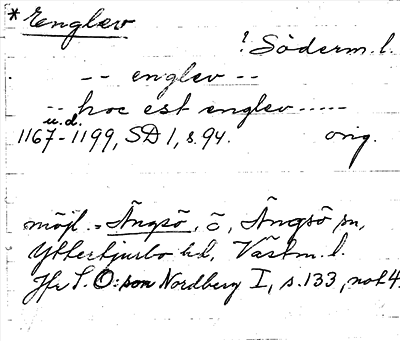 * Englev
? Söderm. l.
-- englev --
-- hoc est englev -----
u.d.
1167-1199, SD 1, s. 94. orig.
möjl. = Ängsö, ö, Ängsö sn,
Yttertjurbo hd, Västm. l.
Jfr S. O:son Nordberg I, s. 133, not 4.